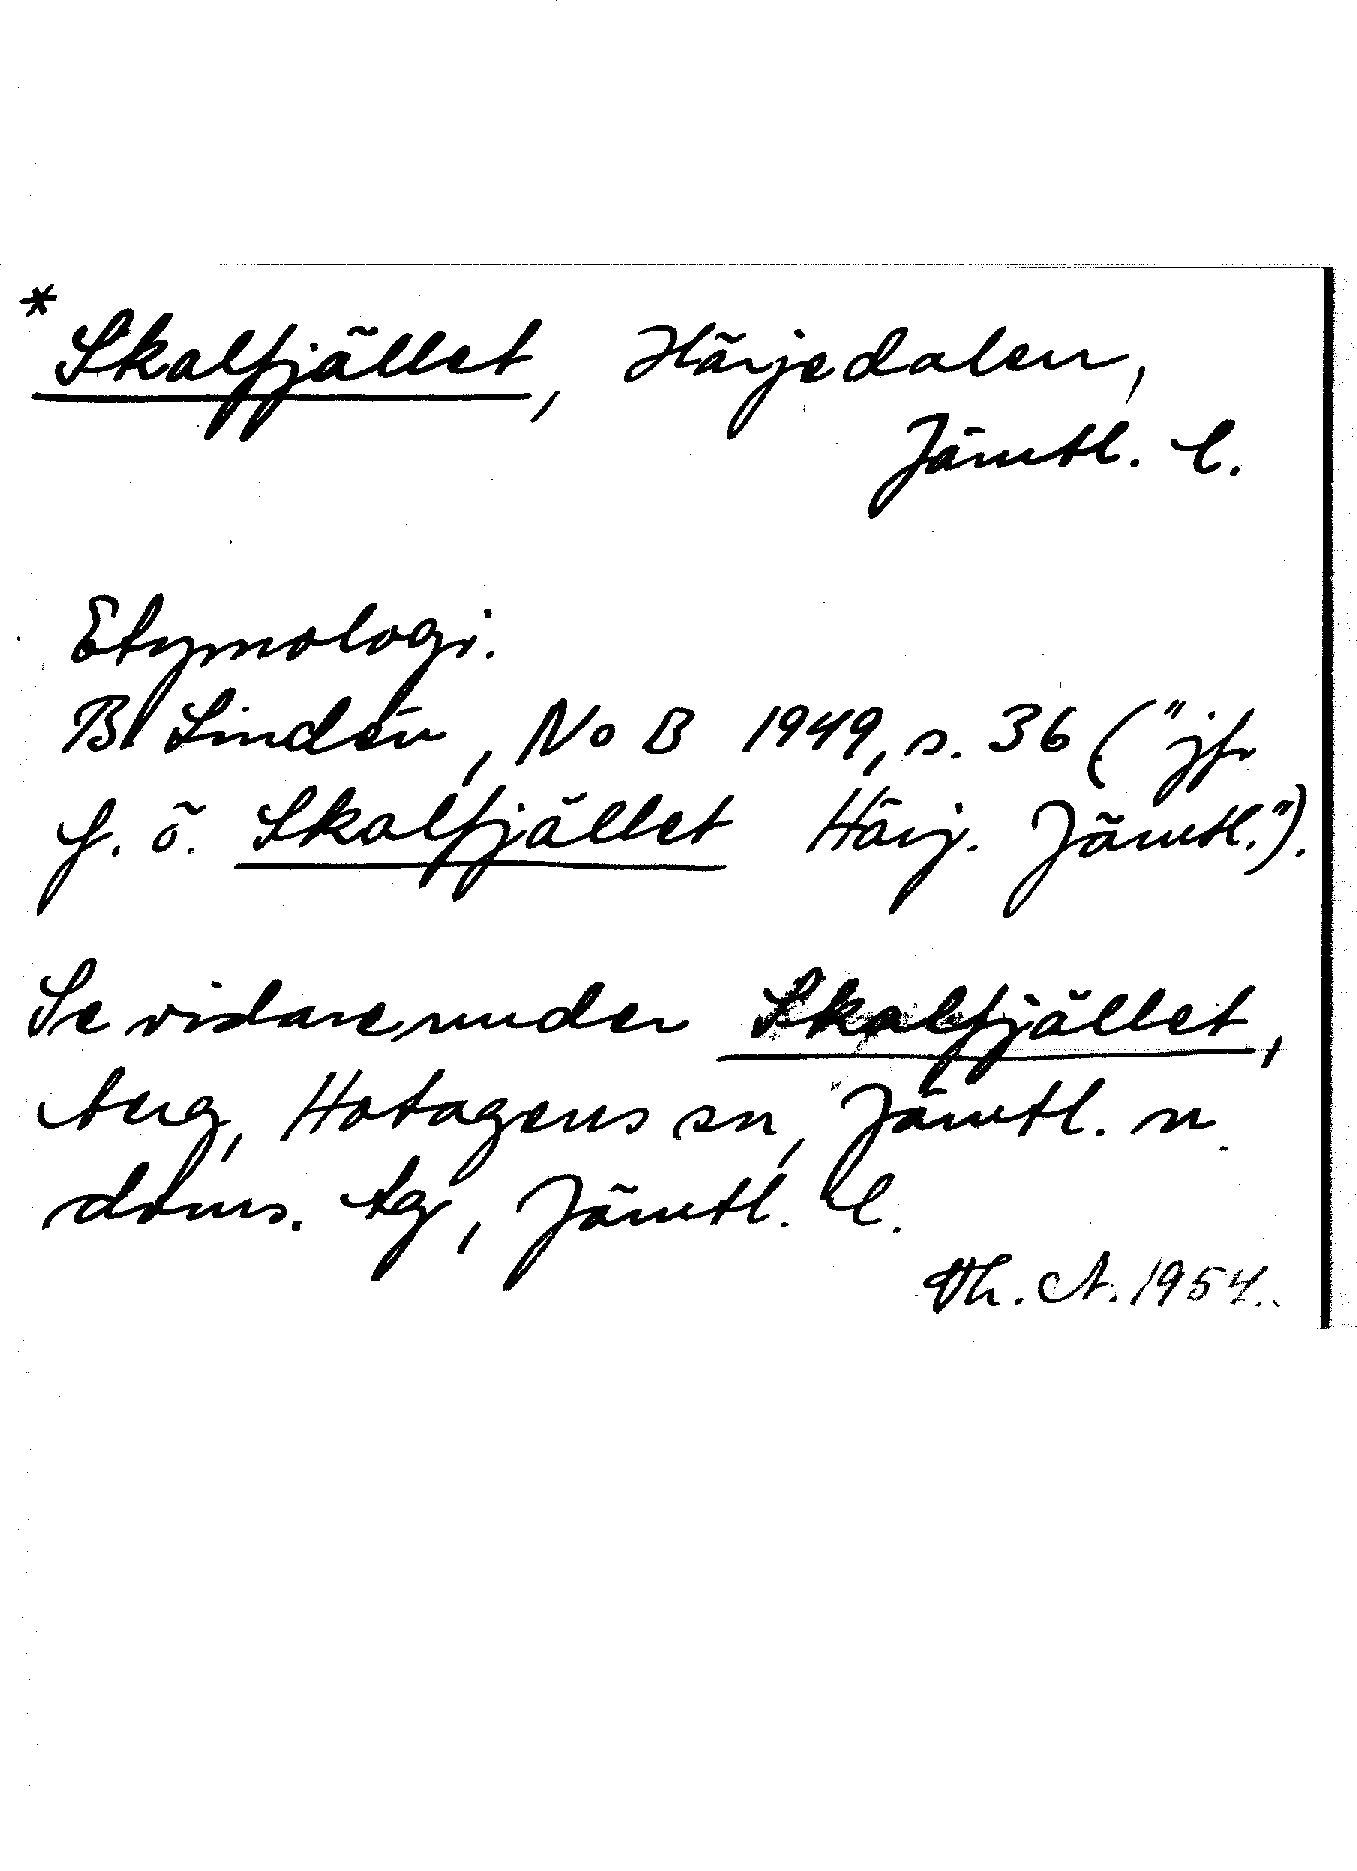 * Skalfjället, Härjedalen,
Jämtl. l.
Etymologi.
B. Lindén, NoB 1949, s. 36 ("jfr
f. ö. Skalfjället Härj. Jämtl.").
Se vidare under Skalfjället,
berg, Hotagens sn, Jämtl. n.
doms. tg, Jämtl. l.
Th. A. 1954.